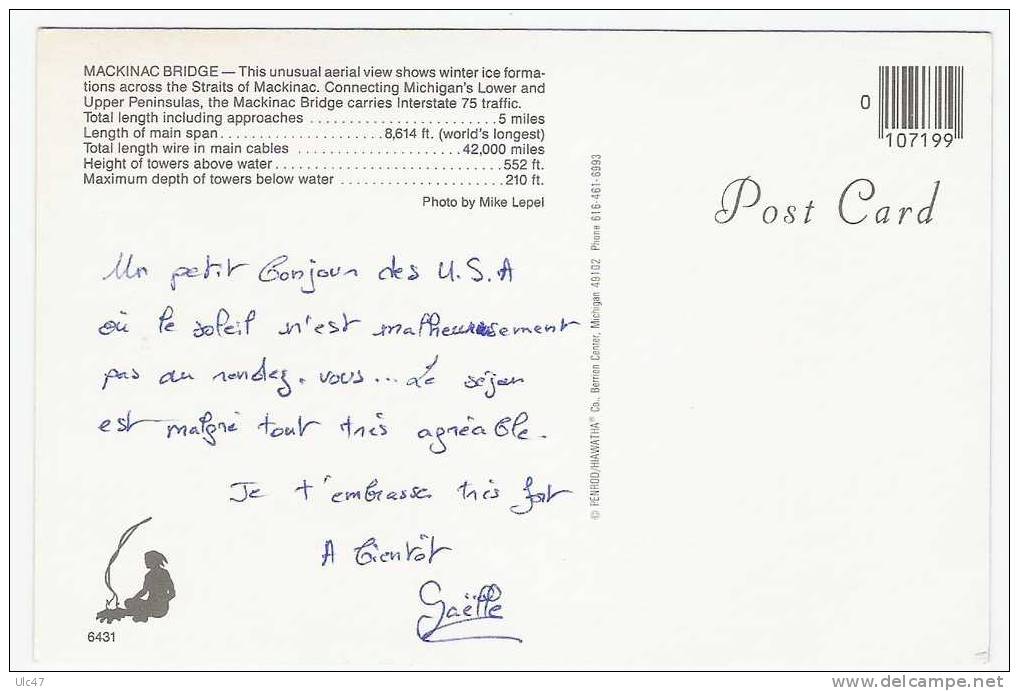 MACKINAC BRIDGE — This unusual aerial view shows winter ice forma-
tions across the Straits of Mackinac. Connecting Michigan's Lower and
Upper Peninsulas, the Mackinac Bridge carries Interstate 75 traffic.
Total length including approaches ........................5 miles
Length of main span.....................8,614 ft. (world's longest)
Total length wire in main cables .....................42,000 miles
Height of towers above water.............................552 ft.
Maximum depth of towers below water .....................210 ft.
Photo by Mike Lepel
0
107199
Post Card
Un petit bonjour des U.S.A
où le soleil n'est malheureusement
pas au rendez-vous... Le séjour
est malgré tout très agréable.
Je t'embrasse très fort
A bientôt
Gaëlle
© PENROD/HIAWATHA® Co., Berrien Center, Michigan 49102 Phone 616-461-6993
6431
Ulc47
www.delcampe.net